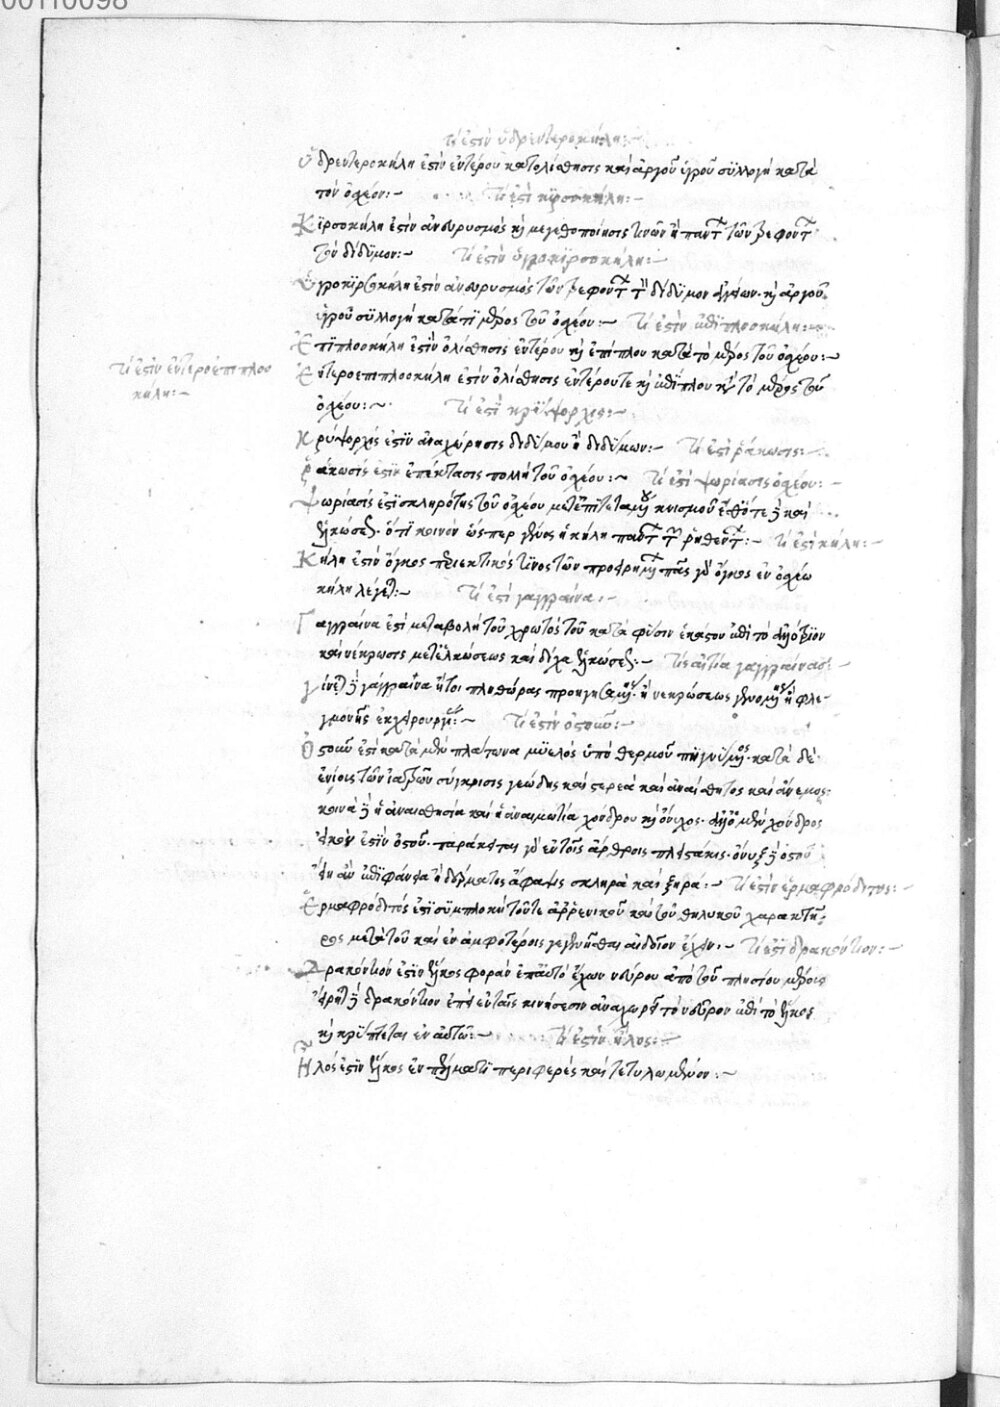 00110098
τί ἐστὶν ὑδρεντεροκήλη:
Ὑδρεντεροκήλη ἐστὶν ἐντέρου κατολίσθησις καὶ ἀργοῦ ὑγροῦ συλλογὴ κατὰ
τὸν ὀσχέον:~ Τί ἐστι κιρσοκήλη:~
Κιρσοκήλη ἐστὶν ἀνευρυσμὸς κ μεγεθοποίησις τινῶν ἢ πάντ τῶν τρεφόντ
τὸν δίδυμον:~ Τί ἐστὶν ὑγροκιρσοκήλη:~
Ὑγροκιρσοκήλη ἐστὶν ἀνευρυσμὸς τῶν τρεφόντ τ δίδυμον ἀγγείων· κ ἀργοῦ
ὑγροῦ συλλογὴ κατά τι μέρος τοῦ ὀσχέου:~ Τί ἐστὶν ἐπιπλοοκήλη:~
Ἐπιπλοοκήλη ἐστὶν ὀλίσθησις ἐντέρου κ ἐπίπλου κατὰ τὸ μέρος τοῦ ὀσχέου:~
τί ἐστὶν ἐντεροεπιπλοο
κήλη:~
Ἐντεροεπιπλοοκήλη ἐστὶν ὀλίσθησις ἐντέρου τε κ ἐπίπλου κατὰ τὸ μέρος τοῦ
ὀσχέου:~ Τί ἐστι κρύψορχις:~
Κρύψορχίς ἐστὶν ἀναχώρησις διδύμου ἢ διδύμων:~ Τί ἐστι ῥάκωσις:~
Ῥάκωσίς ἐστὶν ἐπέκτασις πολλὴ τοῦ ὀσχέου:~ Τί ἐστι ψωρίασις ὀσχέου:~
Ψωρίασίς ἐστι σκληρότης τοῦ ὀσχέου μετ' ἐπιτεταμ κνισμοῦ ἔσθ' ὅτε δὲ καὶ
ἑλκώσεως· ὅτι κοινὸν ὥσπερ γένος ἡ κήλη πάντ τῶν ῥηθέντ:~ Τί ἐστι κήλη:~
Κήλη ἐστὶν ὄγκος περιεκτικὸς τινὸς τῶν προειρημ πᾶς γὰρ ὄγκος ἐν ὀσχέω
κήλη λέγεται:~ Τί ἐστι γάγγραινα:~
Γάγγραινα ἐστὶ μεταβολὴ τοῦ χρωτὸς τοῦ κατὰ φύσιν ἑκάστου ἐπὶ τὸ
καὶ νέκρωσις μεθ' ἑλκώσεως καὶ δίχα ἑλκώσεως:~ Τίς αἰτία γαγγραίνας:~
γίνεται δὲ γάγγραινα ἤτοι πληθώρας προηγησαμ ἢ νεκρώσεως γενομ ἢ φλε
γμονῆς ἐκ χειρουργ:~ Τί ἐστὶν ὀστοῦν:~
Ὀστοῦν ἐστὶ κατὰ μὲν πλάτωνα μυελὸς ὑπὸ θερμοῦ πηγνύμενος· κατὰ δὲ
ἐνίοις τῶν ἰατρῶν σύγκρισις γεώδης καὶ στερεὰ καὶ ἀναίσθητος καὶ ἄνεμος·
κοινὰ δὲ ἡ ἀναισθησία καὶ ἡ ἀναιμωτία χόνδρου κ ὄνυχος· μὲν χόνδρος
ἐστὶν ὀστοῦν· παράκειται γὰρ ἐν τοῖς ἄρθροις πλειστάκις· ὄνυξ δὲ ὀστοῦ
ἐπιφάνεια ἢ δέρματος σκληρὰ καὶ ξηρά:~ Τί ἐστὶν ἑρμαφρόδιτος:~
Ἑρμαφρόδιτός ἐστι συμπλοκὴ τοῦτε ἀρρενικοῦ καὶ τοῦ θηλυκοῦ χαρακτῆ
ρος μετὰ τοῦ καὶ ἐν ἀμφοτέροις γεγενῆσθαι αἰδοῖον ἔχειν:~ Τί ἐστι δρακόντιον:~
Δρακόντιόν ἐστὶν ἕλκος φορὰν ἐπ' αὐτὸ ἔχων νεύρου ἀπὸ τοῦ πλησίου μέρους
εἴρηται δὲ δρακόντιον ἐπεὶ ἐν ταῖς κινήσεσιν ἀναχωρεῖ τὸ νεῦρον ἐπὶ τὸ ἕλκος
κ κρύπτεται ἐν αὐτῶ:~ Τί ἐστὶν ἧλος:~
Ἧλός ἐστὶν ἕλκος ἐν πέλματι περιφερὲς καὶ τετυλωμένον:~